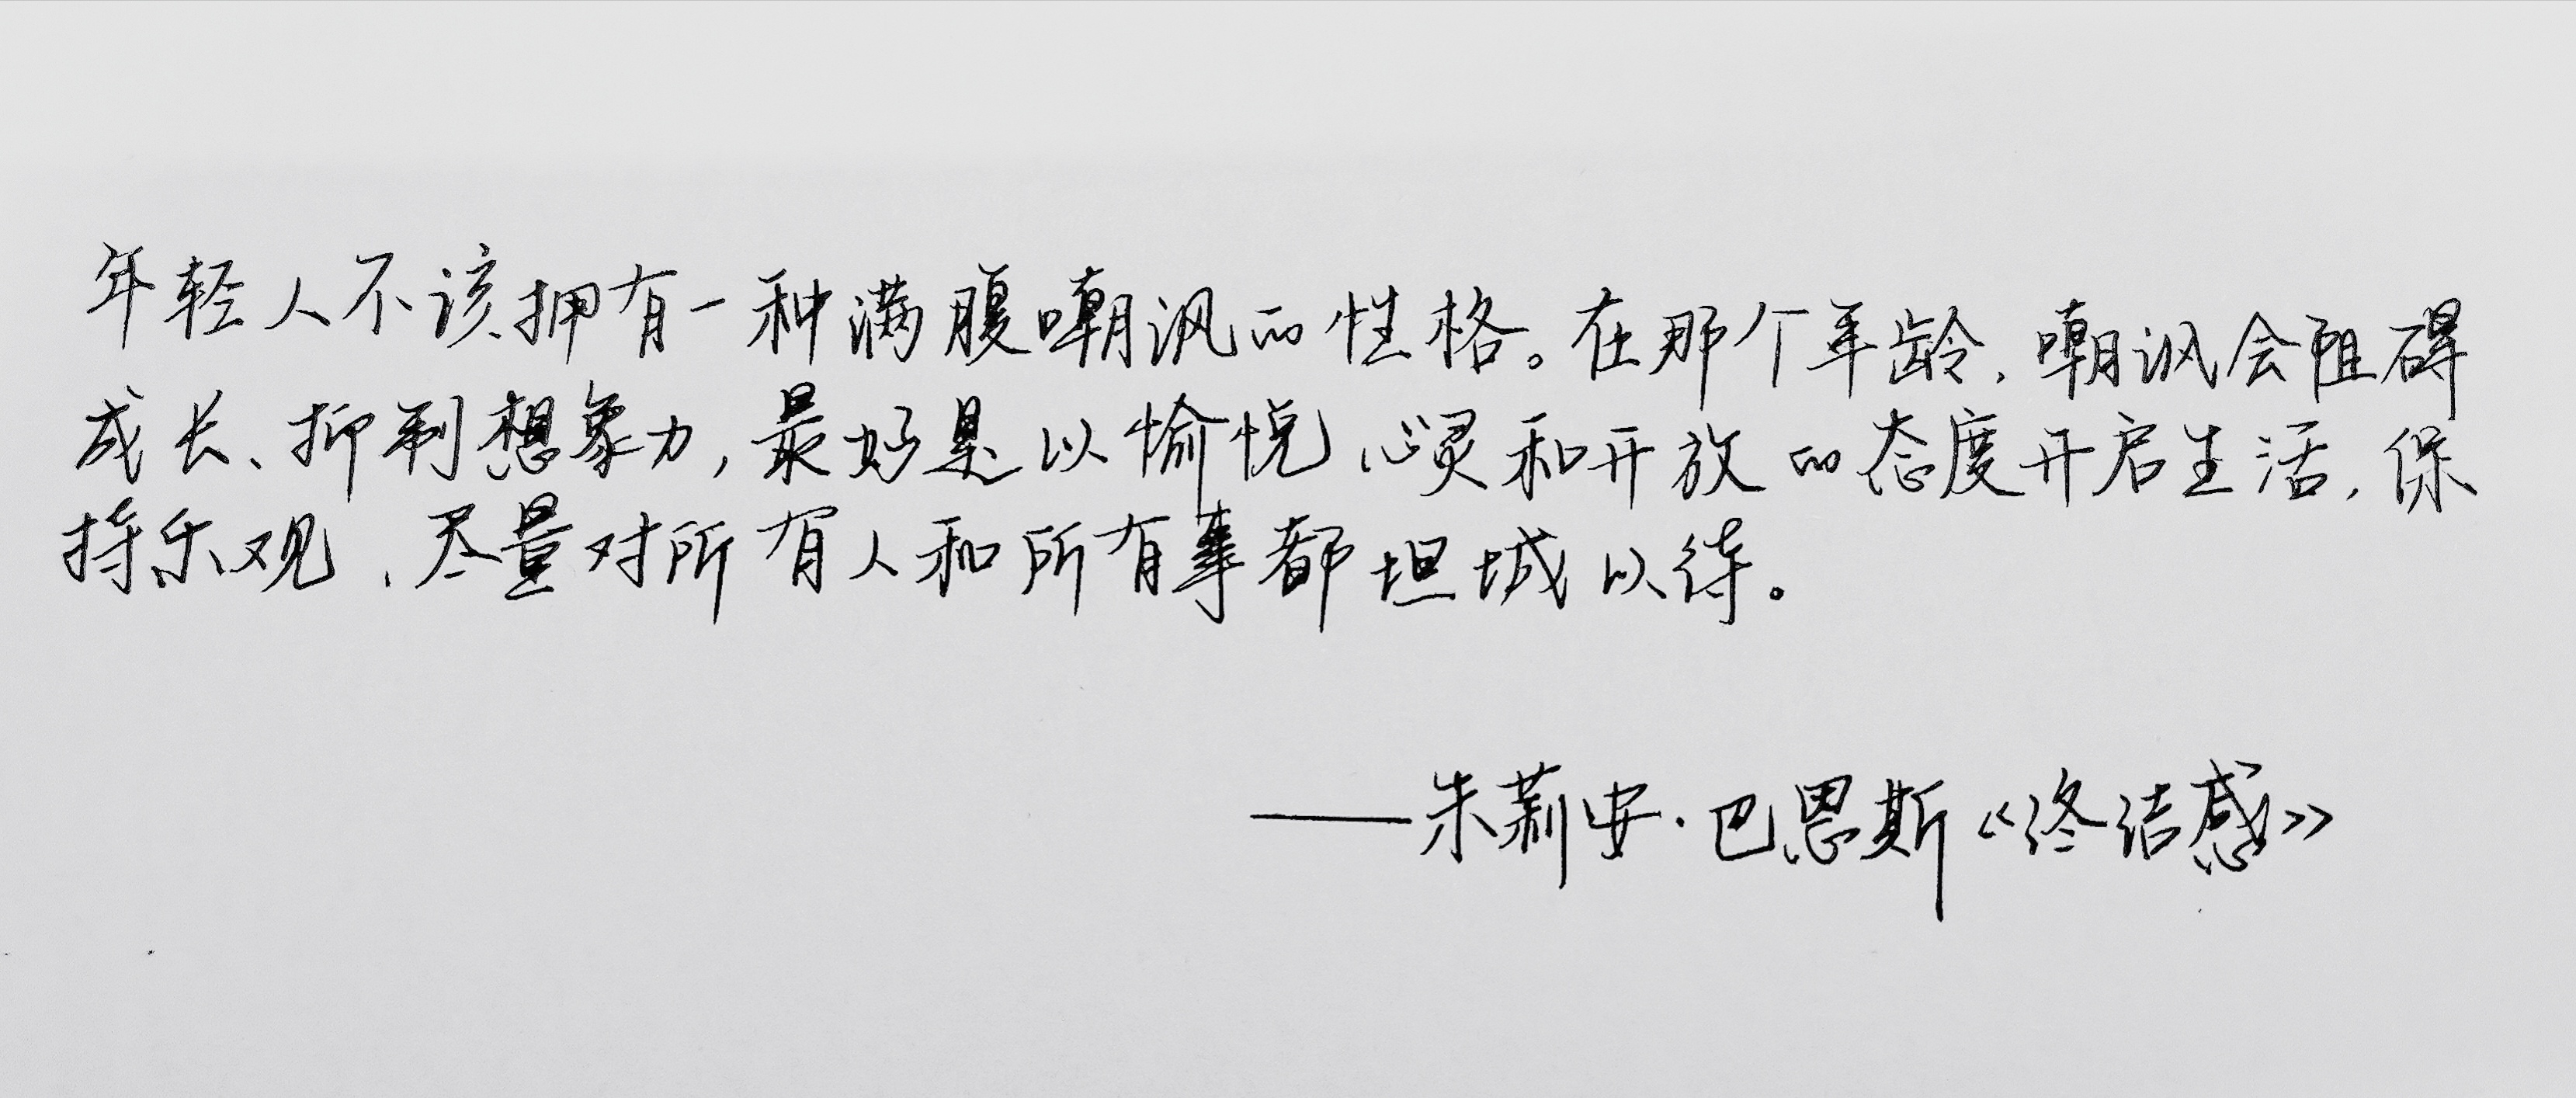 年轻人不该拥有一种满腹嘲讽的性格。在那个年龄,嘲讽会阻碍
成长、抑制想象力,最好是以愉悦心灵和开放的态度开启生活,保
持乐观、尽量对所有人和所有事都坦城以待。
——朱莉安·巴恩斯《终结感》